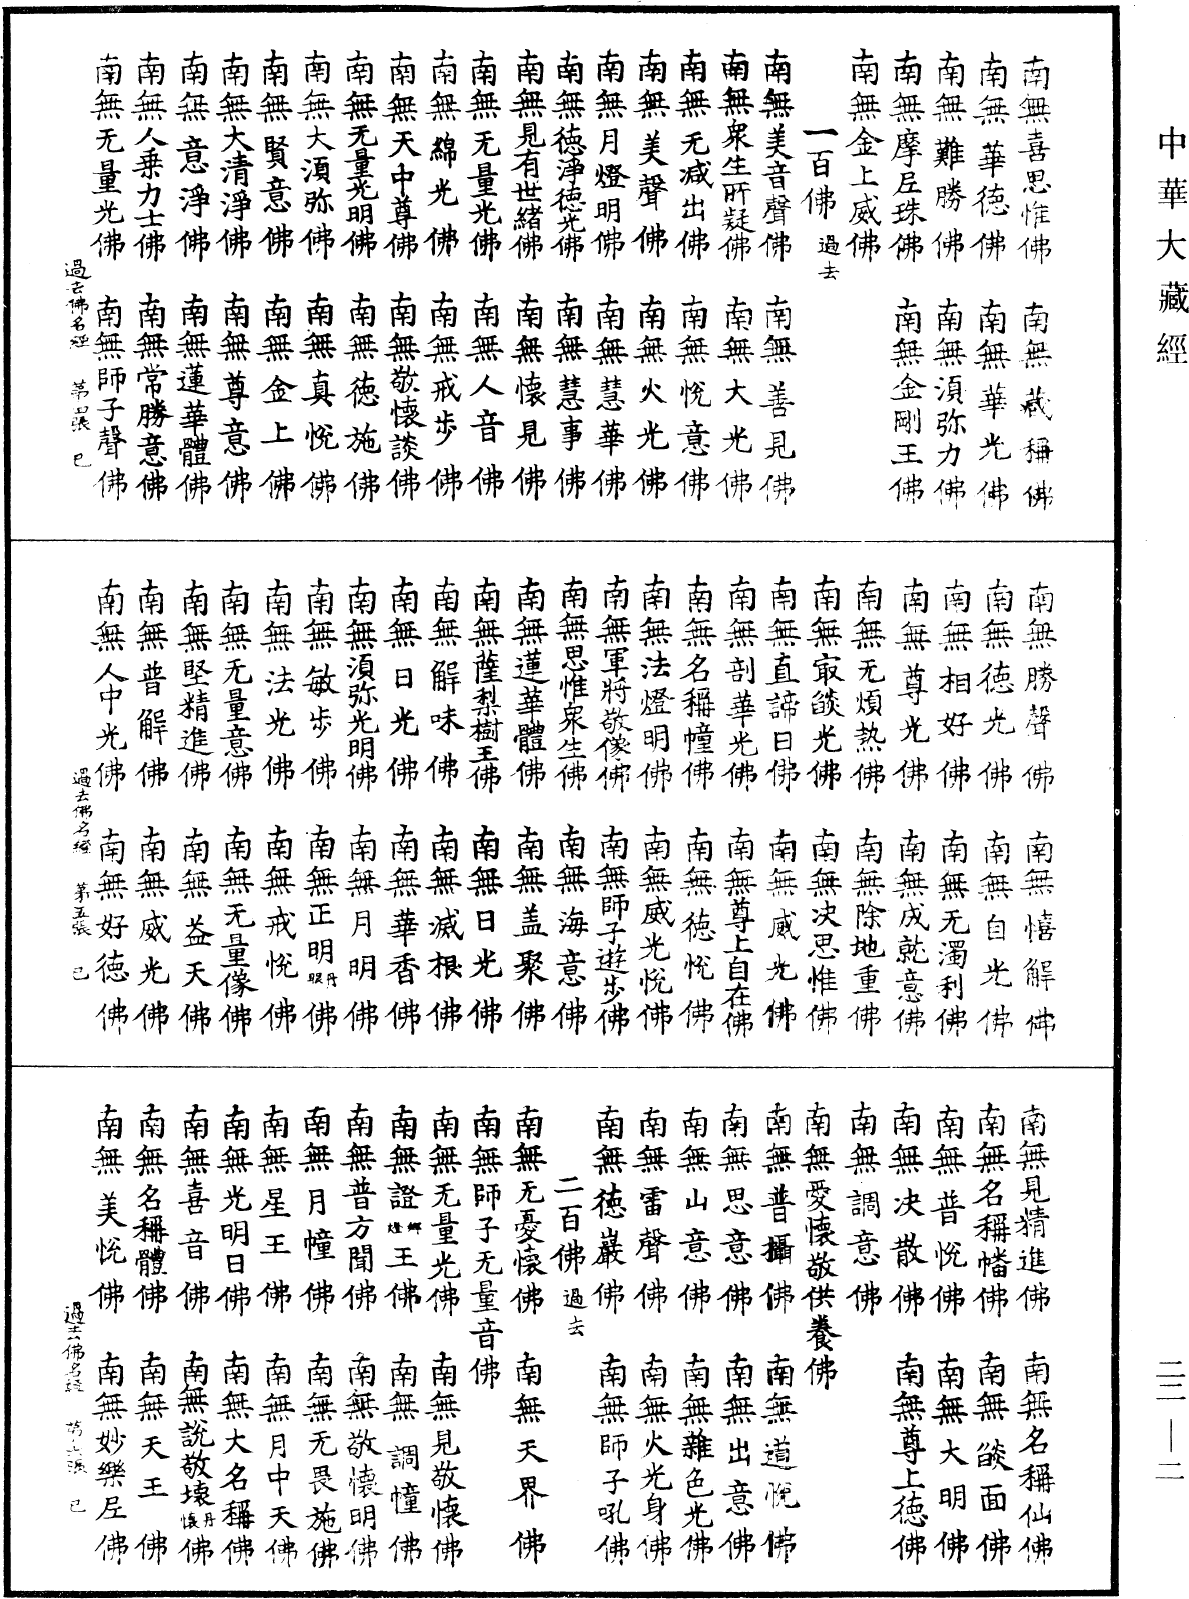 中華大藏經
南無喜思惟佛 南無藏稱佛
南無華德佛 南無華光佛
南無難勝佛 南無湏弥力佛
南無摩尼珠佛 南無金剛王佛
南無金上威佛
一百佛 過去
南無美音聲佛 南無善見佛
南無衆生所疑佛 南無大光佛
南無无減出佛 南無悅意佛
南無美聲佛 南無火光佛
南無月燈明佛 南無慧華佛
南無德淨德光佛 南無慧事佛
南無見有世緒佛 南無懷見佛
南無无量光佛 南無人音佛
南無綿光佛 南無戒步佛
南無天中尊佛 南無敬懷談佛
南無无量光明佛 南無德施佛
南無大湏弥佛 南無真悅佛
南無賢意佛 南無金上佛
南無大清淨佛 南無尊意佛
南無意淨佛 南無蓮華體佛
南無人乘力士佛 南無常勝意佛
南無无量光佛 南無師子聲佛
過去佛名經 第四張 巳
南無勝聲佛 南無憘解佛
南無德光佛 南無自光佛
南無相好佛 南無无濁利佛
南無尊光佛 南無成就意佛
南無无煩熱佛 南無除地重佛
南無冣燄光佛 南無决思惟佛
南無直諦日佛 南無威光佛
南無剖華光佛 南無尊上自在佛
南無名稱幢佛 南無德悅佛
南無法燈明佛 南無威光悅佛
南無軍將敬像佛 南無師子遊步佛
南無思惟衆生佛 南無海意佛
南無蓮華體佛 南無盖聚佛
南無薩梨樹王佛 南無日光佛
南無解味佛 南無滅根佛
南無日光佛 南無華香佛
南無湏弥光明佛 南無月明佛
南無敏步佛 南無正明丹眼佛
南無法光佛 南無戒悅佛
南無无量意佛 南無无量像佛
南無堅精進佛 南無益天佛
南無普解佛 南無威光佛
南無人中光佛 南無好德佛
過去佛名經 第五張 巳
南無見精進佛 南無名稱仙佛
南無名稱幡佛 南無燄面佛
南無普悅佛 南無大明佛
南無决散佛 南無尊上德佛
南無調意佛
南無愛懷敬供養佛
南無普攝佛 南無道悅佛
南無思意佛 南無出意佛
南無山意佛 南無雜色光佛
南無雷聲佛 南無火光身佛
南無德巖佛 南無師子吼佛
二百佛 過去
南無无憂懷佛 南無天界佛
南無師子无量音佛
南無无量光佛 南無見敬懷佛
南無證鄉燈王佛 南無調幢佛
南無普方聞佛 南無敬懷明佛
南無月幢佛 南無无畏施佛
南無星王佛 南無月中天佛
南無光明日佛 南無大名稱佛
南無喜音佛 南無說敬壞丹懷佛
南無名稱體佛 南無天王佛
南無美悅佛 南無妙樂尼佛
過去佛名經 第六張 巳
二二—二